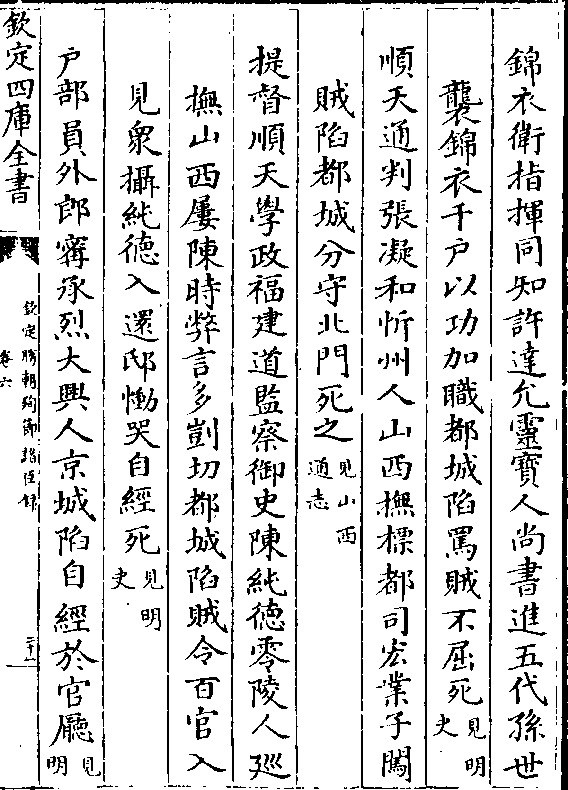 錦衣衛指揮同知許達允靈寶人尚書進五代孫世
襲錦衣千戶以功加職都城陷罵賊不屈死見明史
順天通判張凝和忻州人山西撫標都司宏業子闖
賊陷都城分守北門死之見山西通志
提督順天學政福建道監察御史陳純德零陵人巡
撫山西屢陳時弊言多剴切都城陷賊令百官入
見衆攝純德入還邸慟哭自經死見明史
户部員外郎寗承烈大興人京城陷自經於官廳見明
欽定四庫全書
欽定勝朝殉節諸臣錄
卷六
二十一